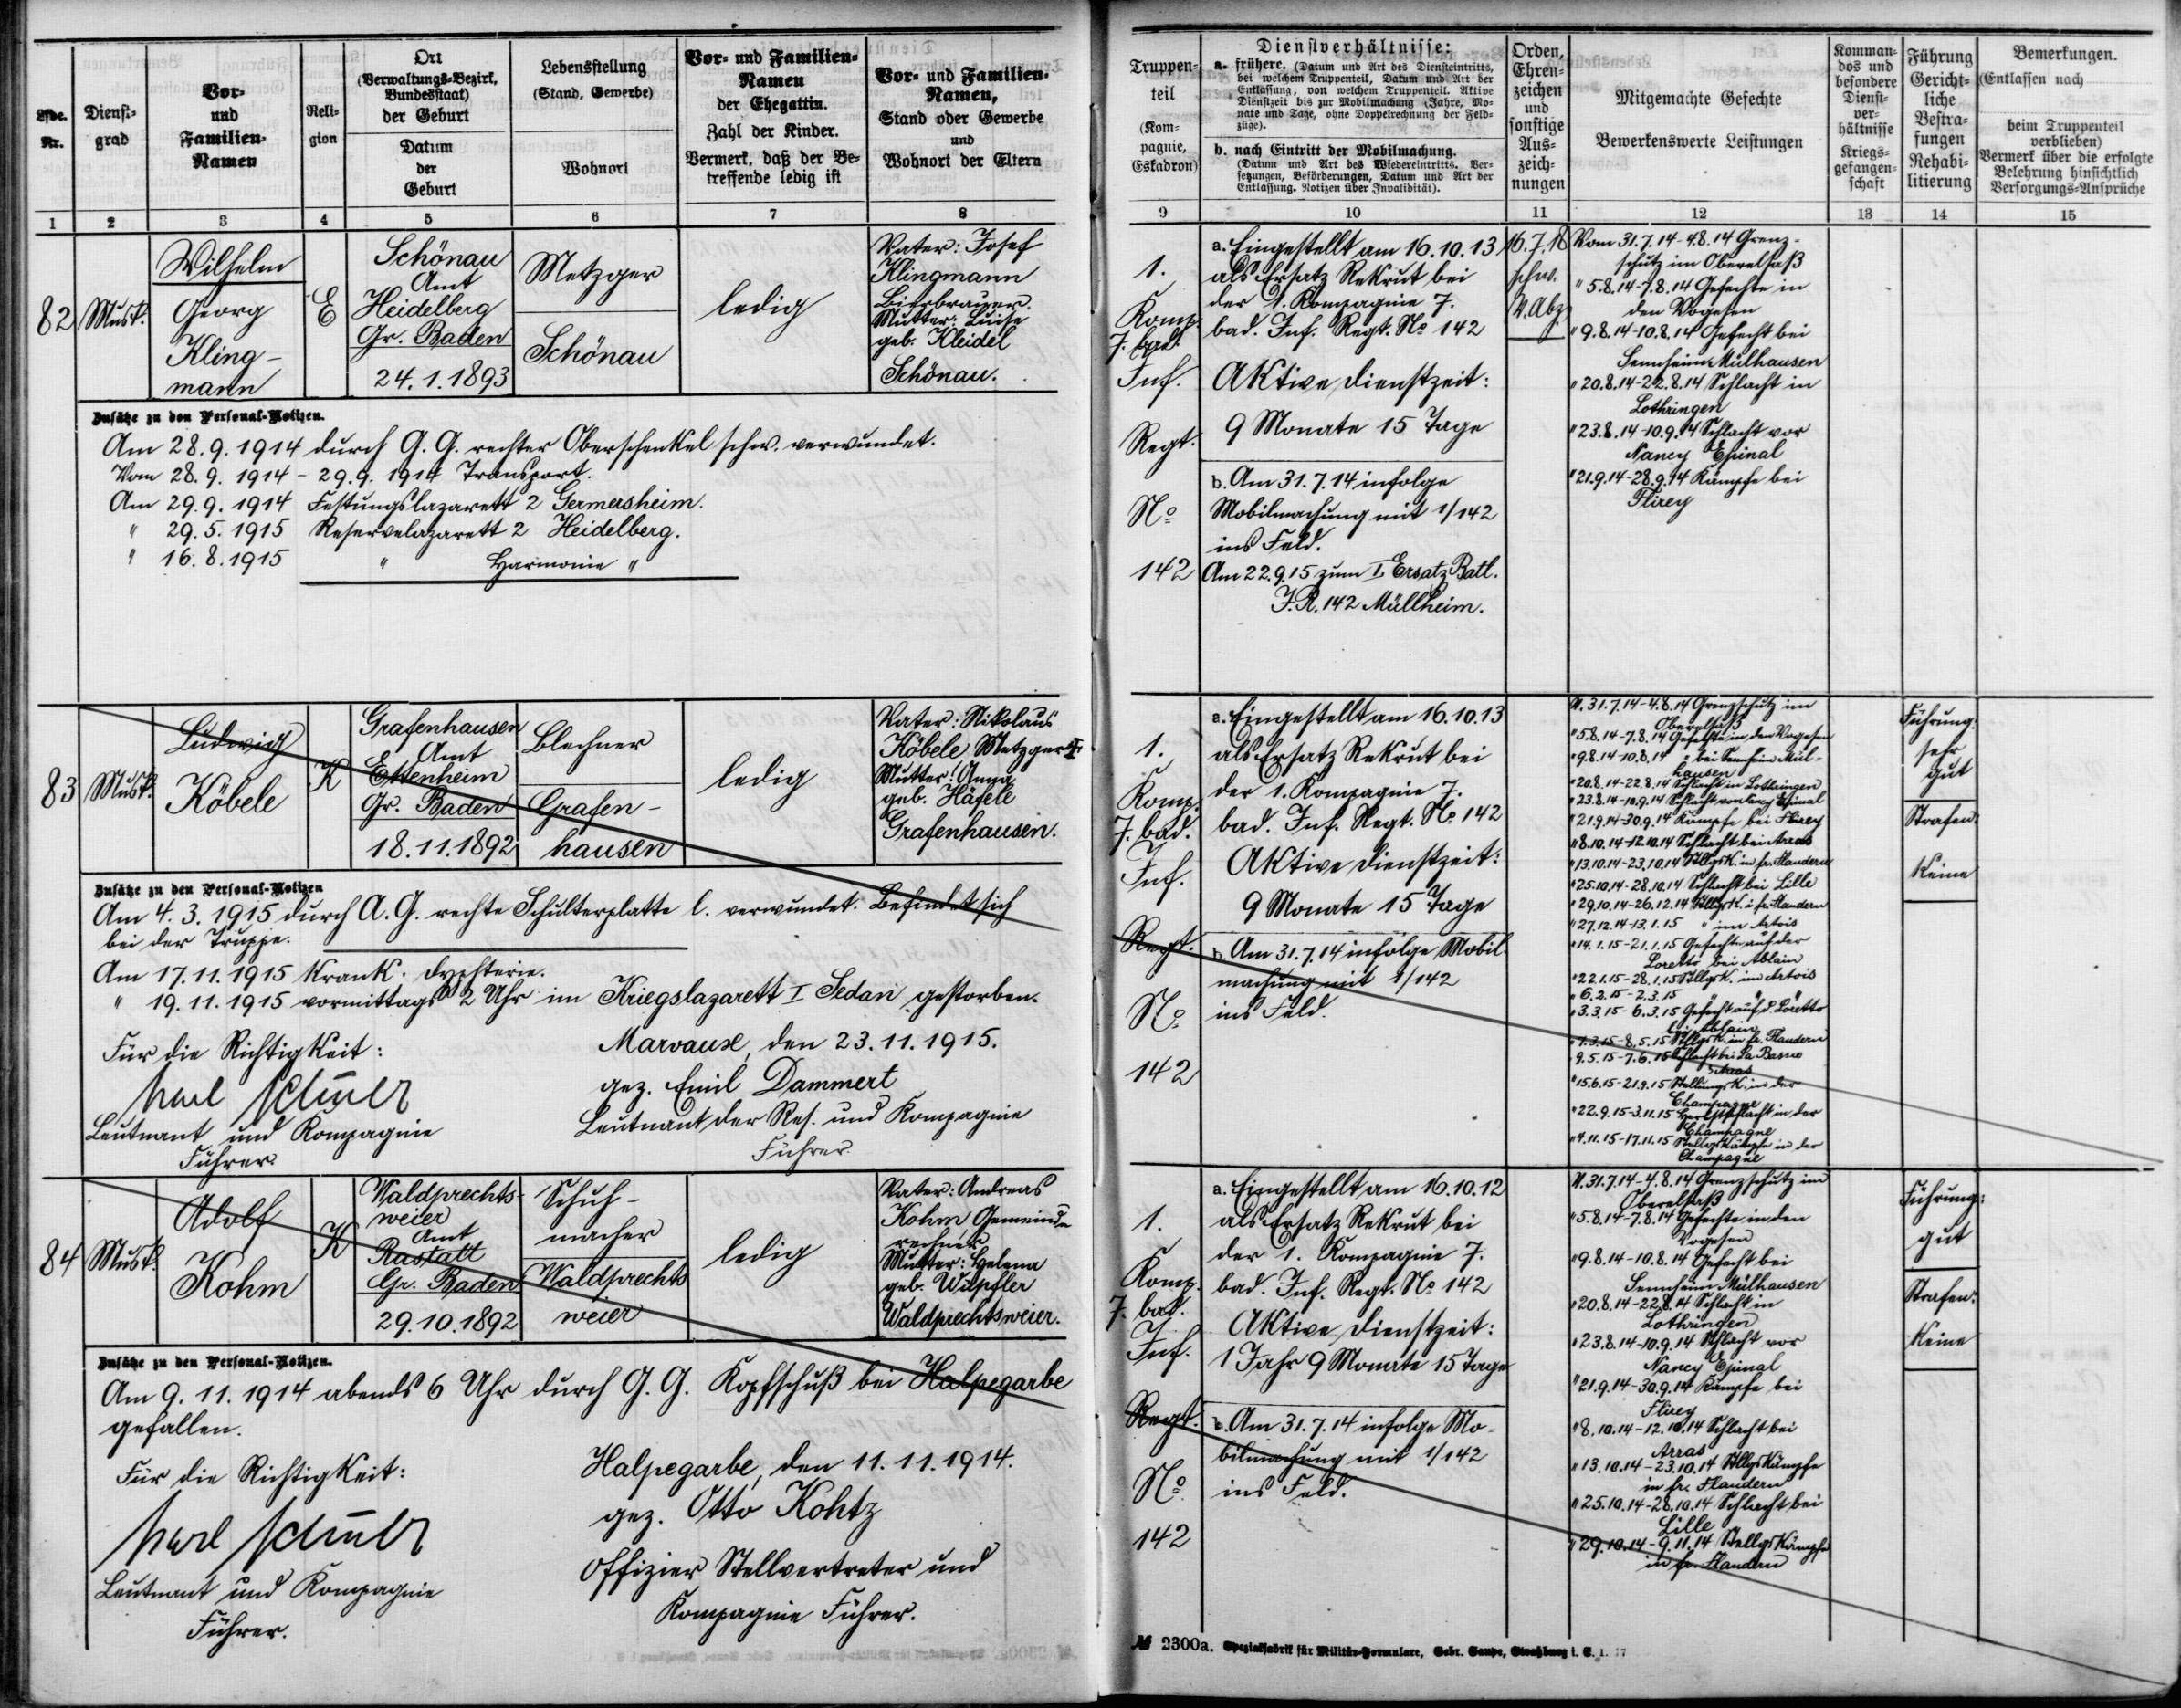 Lfde. Nr.
Dienst-
grad
Vor-
und
Familien-
Namen
Reli-
gion
Ort
(Verwaltungs-Bezirk,
Bundesstaat)
der Geburt
Datum
der
Geburt
Lebensstellung
(Stand, Gewerbe)
Wohnort
Vor- und Familien-
Namen
der Ehegattin.
Zahl der Kinder.
Vermerk, daß der Be-
treffende ledig ist
Vor- und Familien-
Namen,
Stand oder Gewerbe
und
Wohnort der Eltern
1 2 3 4 5 6 7 8
82
Musk.
Wilhelm
Georg
Kling-
mann
E
Schönau
Amt
Heidelberg
Gr. Baden
24.1.1893
Metzger
Schönau
ledig
Vater: Josef
Klingmann
Bierbrauer.
Mutter: Luise
geb. Kleidel
Schönau.
Zusätze zu den Personal-Notizen.
Am 28.9.1914 durch G.G. rechter Oberschenkel schw. verwundet.
Vom 28.9.1914 - 29.9.1914 Transport.
Am 29.9.1914 Festungslazarett 2 Germersheim.
" 29.5.1915 Reservelazarett 2 Heidelberg.
" 16.8.1915 " Harmonie "
83
Musk.
Ludwig
Köbele
K
Grafenhausen
Amt
Ettenheim
Gr. Baden
18.11.1892
Blechner
Grafen-
hausen
ledig
Vater: Nikolaus
Köbele Metzger
Mutter: Anna
geb. Häfele
Grafenhausen.
Zusätze zu den Personal-Notizen
Am 4.3.1915 durch A.G. rechte Schulterplatte l. verwundet. Befindet sich
bei der Truppe.
Am 17.11.1915 Krank. Dyphterie.
" 19.11.1915 vormittags 2 Uhr im Kriegslazarett I Sedan gestorben.
Für die Richtigkeit:
Karl Schuler
Leutnant und Kompagnie
Führer.
Marvaux, den 23.11.1915.
gez. Emil Dammert
Leutnant der Res. und Kompagnie
Führer.
84
Musk.
Adolf
Kohm
K
Waldprechts-
weier
Amt
Rastatt
Gr. Baden
29.10.1892
Schuh-
macher
Waldprechts
weier
ledig
Vater: Andreas
Kohm Gemeinde
rechner
Mutter: Helena
geb. Wipfler
Waldprechtsweier.
Zusätze zu den Personal-Notizen.
Am 9.11.1914 abends 6 Uhr durch G.G. Kopfschuß bei Halpegarbe
gefallen.
Für die Richtigkeit:
Karl Schuler
Leutnant und Kompagnie
Führer.
Halpegarbe, den 11.11.1914.
gez. Otto Kohtz
Offizier Stellvertreter und
Kompagnie Führer.
Truppen-
teil
(Kom-
pagnie,
Eskadron)
Dienstverhältnisse:
a. frühere. (Datum und Art des Diensteintritts,
bei welchem Truppenteil, Datum und Art der
Entlassung, von welchem Truppenteil. Aktive
Dienstzeit bis zur Mobilmachung (Jahre, Mo-
nate und Tage, ohne Doppelrechnung der Feld-
züge).
b. nach Eintritt der Mobilmachung.
(Datum und Art des Wiedereintritts, Ver-
setzungen, Beförderungen, Datum und Art der
Entlassung. Notizen über Invalidität).
Orden,
Ehren-
zeichen
und
sonstige
Aus-
zeich-
nungen
Mitgemachte Gefechte
Bewerkenswerte Leistungen
Komman-
dos und
besondere
Dienst-
ver-
hältnisse
Kriegs-
gefangen-
schaft
Führung
Gericht-
liche
Bestra-
fungen
Rehabi-
litierung
Bemerkungen.
(Entlassen nach
beim Truppenteil
verblieben)
Vermerk über die erfolgte
Belehrung hinsichtlich
Versorgungs-Ansprüche
9 10 11 12 13 14 15
1.
Komp.
7. bad.
Inf.
Regt.
No
142
a. Eingestellt am 16.10.13
als Ersatz Rekrut bei
der 1. Kompagnie 7.
bad. Inf. Regt. No 142
Aktive Dienstzeit:
9 Monate 15 Tage
b. Am 31.7.14 infolge
Mobilmachung mit 1/142
ins Feld.
Am 22.9.15 zum I. Ersatz Batl.
J.R. 142 Müllheim.
16.7.18
schw.
V. Abz
Vom 31.7.14-4.8.14 Grenz-
schutz im Oberelsaß
" 5.8.14-7.8.14 Gefechte in
den Vogesen
" 9.8.14-10.8.14 Gefecht bei
Sennheim Mülhausen
" 20.8.14-22.8.14 Schlacht in
Lothringen
" 23.8.14-10.9.14 Schlacht vor
Nancy Epinal
" 21.9.14-28.9.14 Kämpfe bei
Flirey
1.
Komp.
7. bad.
Inf.
Regt.
No
142
a. Eingestellt am 16.10.13
als Ersatz Rekrut bei
der 1. Kompagnie 7.
bad. Inf. Regt. No 142
Aktive Dienstzeit:
9 Monate 15 Tage
b. Am 31.7.14 infolge Mobil-
machung mit 1/142
ins Feld.
V. 31.7.14-4.8.14 Grenzschutz im
Oberelsaß
" 5.8.14-7.8.14 Gefechte in den Vogesen
" 9.8.14-10.8.14 " bei Sennheim Mül-
hausen
" 20.8.14-22.8.14 Schlacht in Lothringen
" 23.8.14-10.9.14 Schlacht vor Nancy Epinal
" 21.9.14-30.9.14 Kämpfe bei Flirey
" 8.10.14-12.10.14 Schlacht bei Arras
" 13.10.14-23.10.14 Stllgsk. in fr. Flandern
" 25.10.14-28.10.14 Schlacht bei Lille
" 29.10.14-26.12.14 Stllgsk. i. fr. Flandern
" 27.12.14-13.1.15 " im Artois
" 14.1.15-21.1.15 Gefechte auf der
Loretto bei Ablain
" 22.1.15-28.1.15 Stllgsk. im Artois
" 6.2.15-2.3.15 " " "
" 3.3.15-6.3.15 Gefecht auf d. Loretto
bei Ablain
" 7.3.15-8.5.15 Stllgsk. in fr. Flandern
" 9.5.15-7.6.15 Schlacht bei La Basse
Arras
" 15.6.15-21.9.15 Stellungsk. in der
Champagne
" 22.9.15-3.11.15 Herbstschlacht in der
Champagne
" 4.11.15-17.11.15 Stellgskämpfe in der
Champagne
Führung:
sehr
gut
Strafen:
Keine
1.
Komp.
7. bad.
Inf.
Regt.
No
142
a. Eingestellt am 16.10.12
als Ersatz Rekrut bei
der 1. Kompagnie 7.
bad. Inf. Regt. No 142
Aktive Dienstzeit:
1 Jahr 9 Monate 15 Tage
b. Am 31.7.14 infolge Mo-
bilmachung mit 1/142
ins Feld.
V. 31.7.14-4.8.14 Grenzschutz im
Oberelsaß
" 5.8.14-7.8.14 Gefechte in den
Vogesen
" 9.8.14-10.8.14 Gefecht bei
Sennheim Mülhausen
" 20.8.14-22.8.14 Schlacht in
Lothringen
" 23.8.14-10.9.14 Schlacht vor
Nancy Epinal
" 21.9.14-30.9.14 Kämpfe bei
Flirey
" 8.10.14-12.10.14 Schlacht bei
Arras
" 13.10.14-23.10.14 Stllgskämpfe
in fr. Flandern
" 25.10.14-28.10.14 Schlacht bei
Lille
" 29.10.14-9.11.14 Stellgskämpfe
in fr. Flandern
Führung:
gut
Strafen:
Keine
№ 2300a. Spezialfabrik für Militär-Formulare, Gebr. Gaupe, Straßburg i. E.